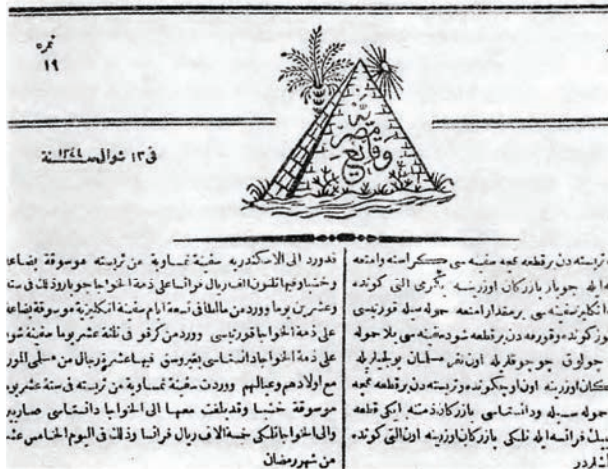 نمره
١٩
وقايع مصريه
فى ١٣ شوال سنة ١٢٤٤
تريسته دن بر قطعه نمچه سفينه سى كراسته وامتعه
ايله جوبار بازركان اوزرينه يگرمى التى كونده
انكليز سفينه سى بر مقدار امتعه حموله سيله قورتيسى
كونده وقورفه دن بر قطعه سفينه سى بلا حموله
جولوق جوجوقلريله اون نفر مسلمان يولجيلريله
اوزرينه اون اوچ كونده وتريسته دن بر قطعه نمچه
حموله سيله ودانستاسى بازركان ذمته ايكى قطعه
فرانسه ايله نلكى بازركان اوزرينه اون التى كونده
قدورد الى الاسكندريه سفينة نمساوية من تريسته موسوقة بضاعة
وخشبا وفيها ثلثون الف ريال فرانسا على ذمة الخواجا جوبار وذلك فى ستة
وعشرين يوما ووردن من مالطا فى تسعة ايام سفينة انكليزية موسوقة بضاعة
على ذمة الخواجا قورتيسى ووردن من كرفو فى ثلثة عشر يوما سفينة
على ذمة الخواجا دانستاسى بغير وسق فيها عشرة رجال من مسلمى المورة
مع اولادهم وعيالهم ووردت سفينة نمساوية من تريسته فى ستة عشر يوما
موسوقة خشبا وقد بلغت معها الى الخواجا دانستاسى
والى الخواجا نلكى خمسة الاف ريال فرانسا وذلك فى اليوم الخامس عشر
من شهر رمضان